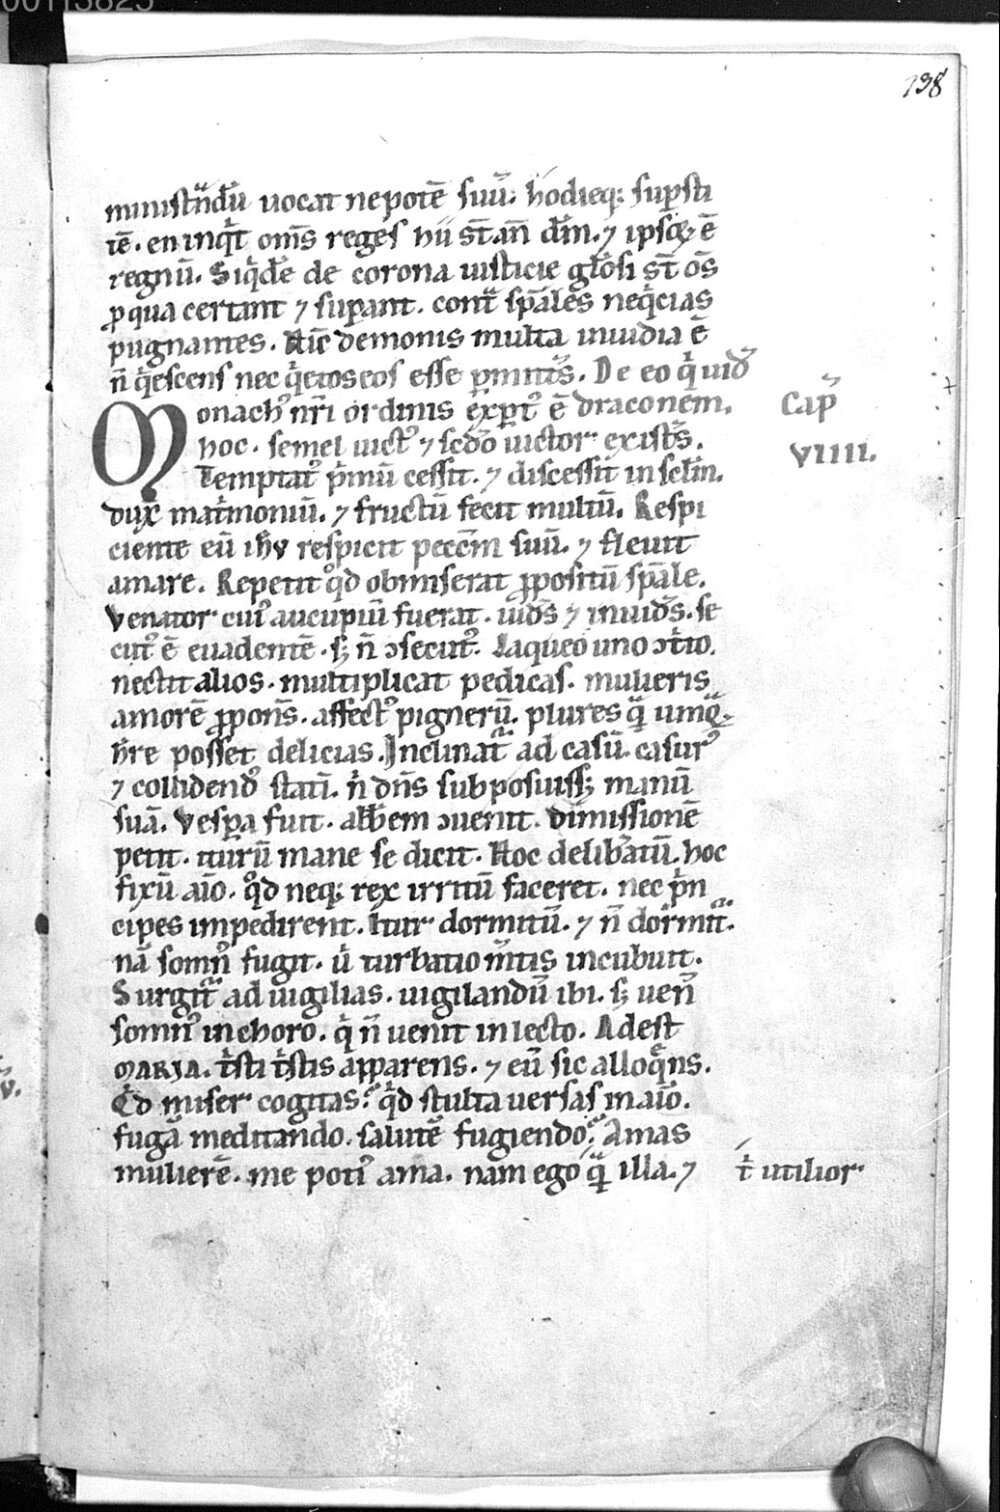 00113825
138
ministrādū uocat nepotē suū. hodieq; supsti
tē. en inqͥt om̄s reges hii st̄ an̄ dm̄. ⁊ ipsoꝝ ē
regnū. Siqͥdē de corona iusticie glosi st̄ os̄
ꝓ qua certant ⁊ supant. contͣ spales neqͥcias
pugnantes. Hic demonis multa inuidia ē
n̄ qͥescens nec qͥetos eos esse pmittēs. De eo qͥ uid
Monachꝰ nr̄i ordinis exptꝰ ē draconem, Cap̄
hoc. semel uictꝰ ⁊ scdo uictor existēs. VIIII.
Temptatꝰ pͥmū cessit. ⁊ discessit in sclm̄.
dux̄ matͥmoniū. ⁊ fructū fecit multū. Respi
ciente eū ihu respicit pcc̄m suū. ⁊ fleuit
amare. Repetit qͦd obmiserat ꝓpositū spāle.
Venator cuiꝰ aucupiū fuerat. uidēs ⁊ inuidēs. se
cutꝰ ē euadentē. sꝫ n̄ ɔsecutꝰ. Laqueo uno ɔtͥto.
nectit alios. multiplicat pedicas. mulieris
amorē ꝓponēs. affectꝰ pignerū. plures qͣ umqͣ
hr̄e posset delicias. Inclinatͬ ad casū. casurꝰ
⁊ collidendꝰ statī. nͥ dn̄s subposuissꝫ manū
suā. Vespa fuit. abb̄em ɔuenit. dimissionē
petit. iturū mane se dicit. Hoc delibatū. hoc
fixū aīo. qͦd neq; rex irritū faceret. nec pͥn
cipes impedirent. Itur dormitū. ⁊ n̄ dormitͬ.
nā somnꝰ fugit. uͥ turbatio mītis incubuit.
Surgitͬ ad uigilias. uigilandū ibi. sꝫ uenͥ
somnꝰ in choro. qͥ n̄ uenit in lecto. Adest
MARIA. tͥsti tͥstis apparens. ⁊ eū sic alloqͥns.
Qͥd miser cogitas? qͥd stulta uersas in aīo.
fugā meditando. salutē fugiendo? Amas
mulierē. me potiꝰ ama. nam ego qͣ illa. ⁊ tͥ utilior